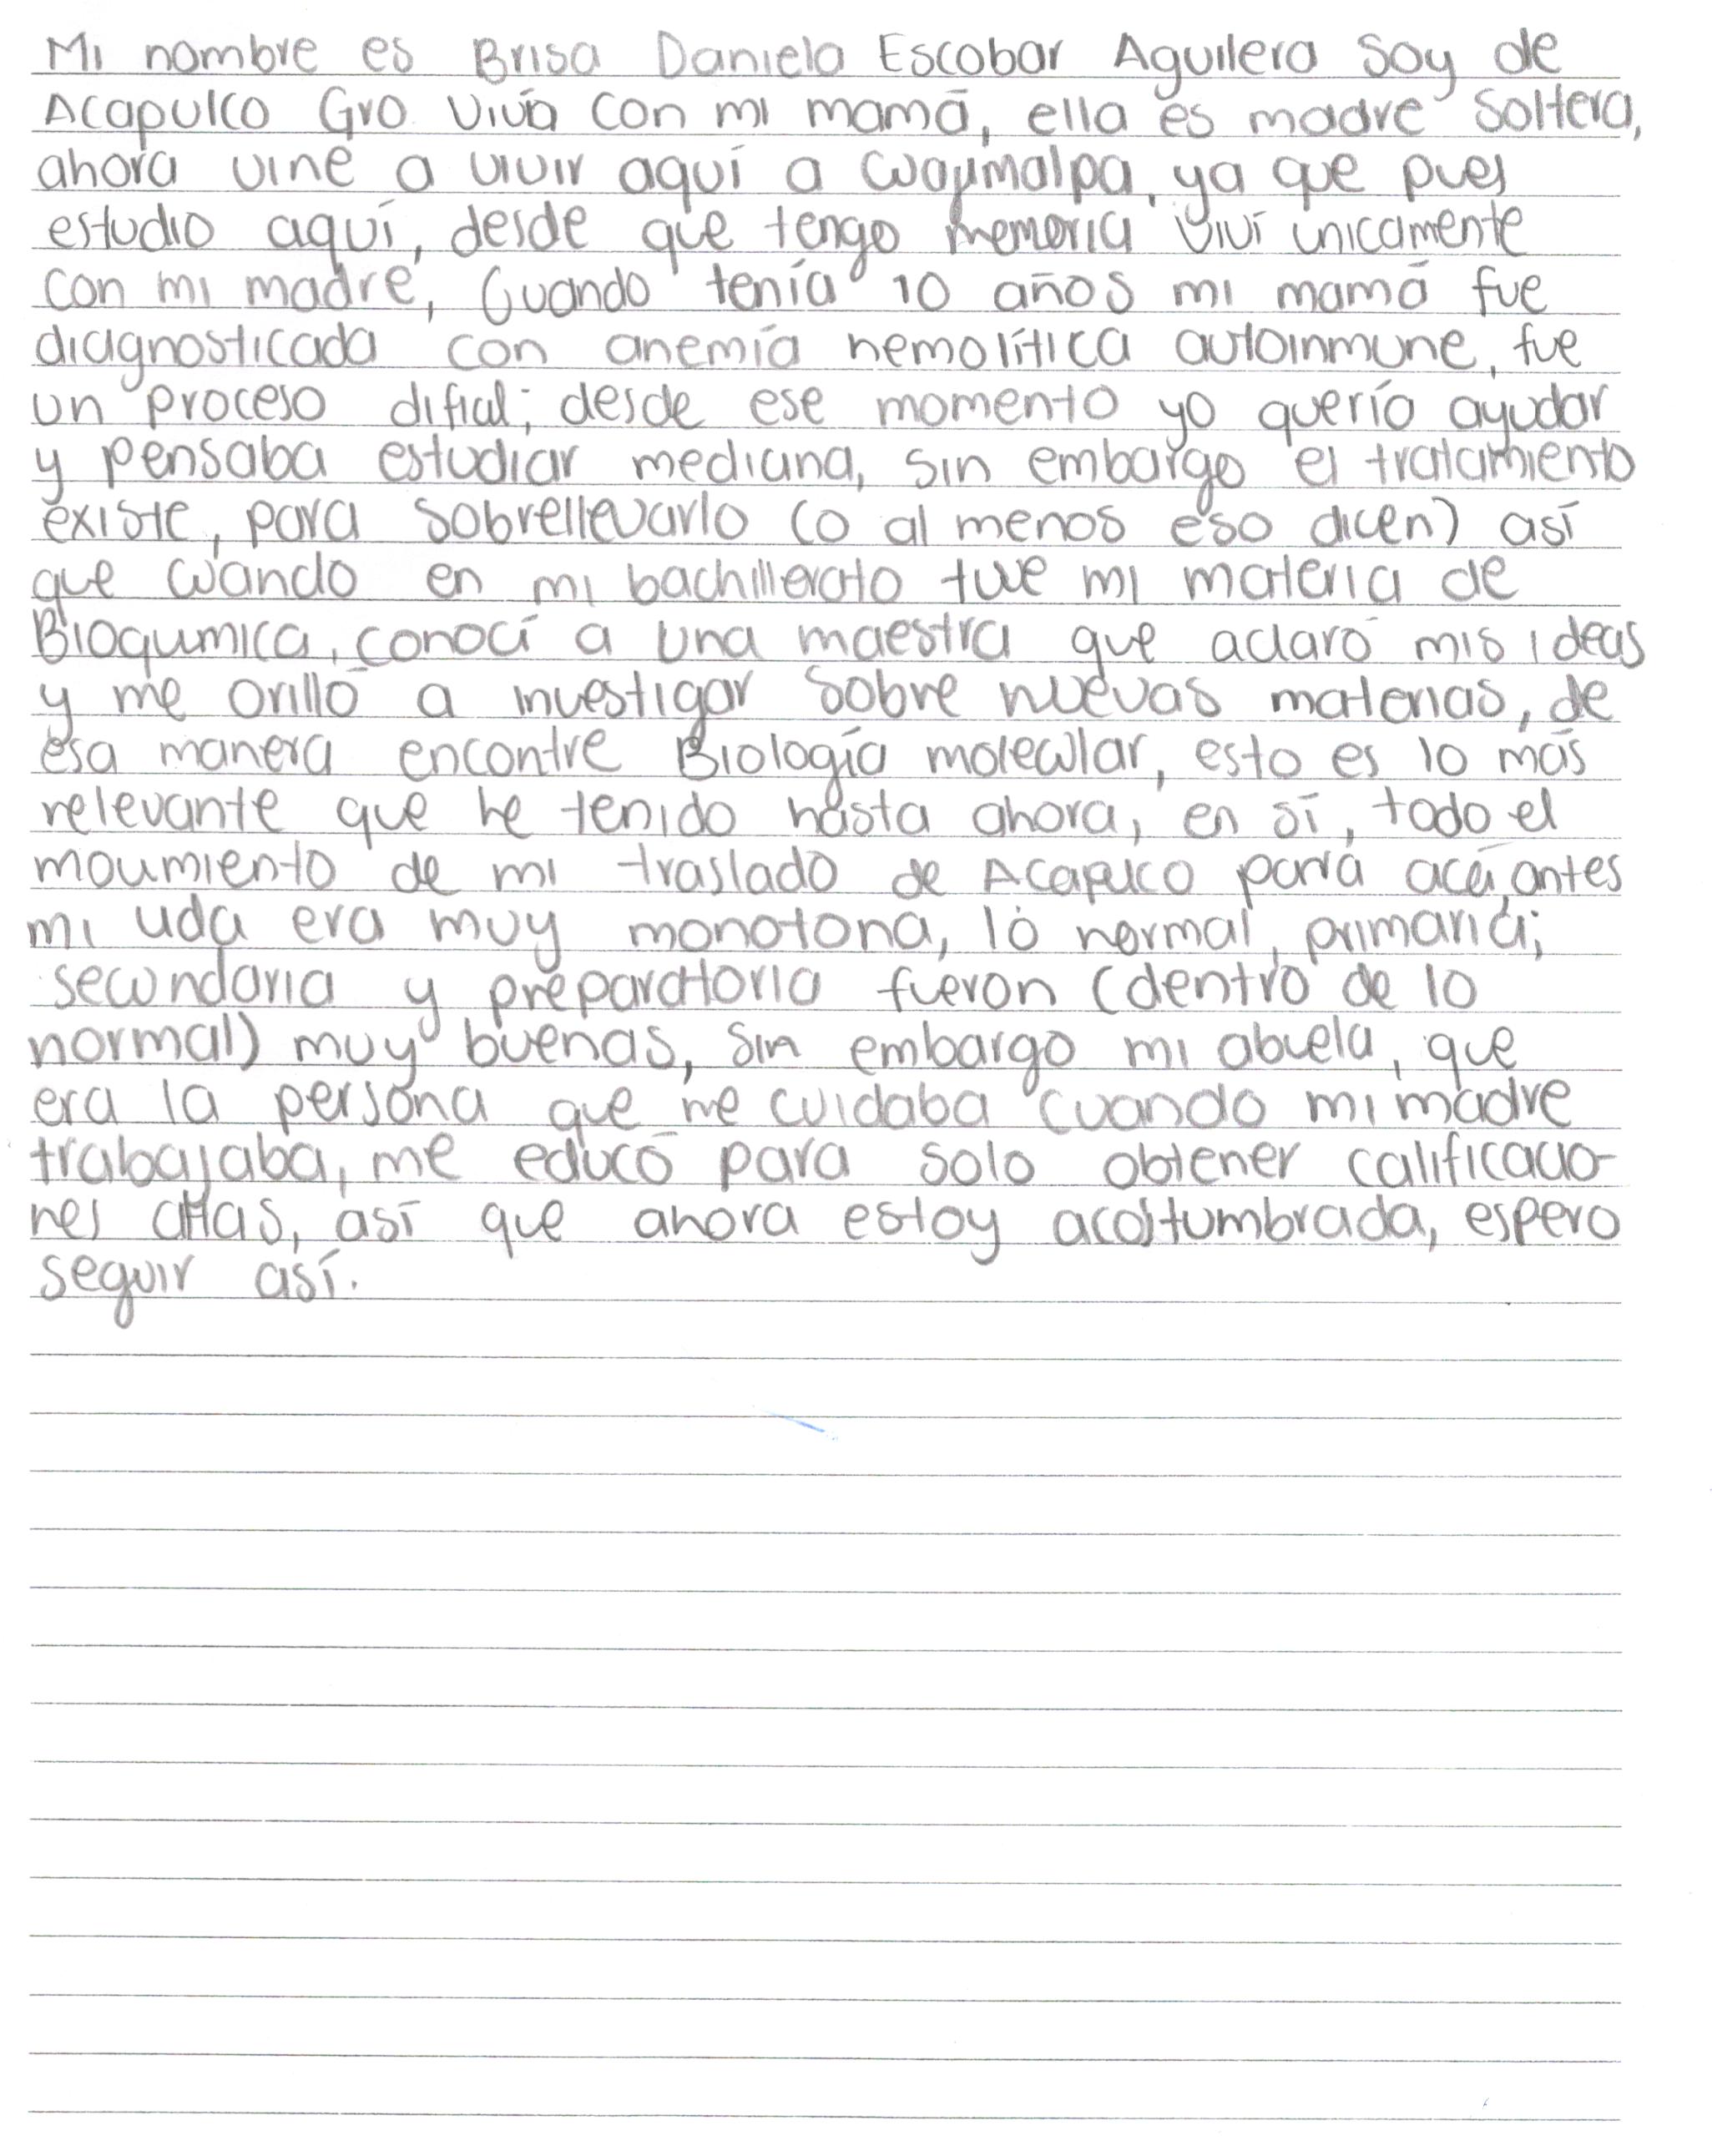 Mi nombre es Brisa Daniela Escobar Aguilera Soy de
Acapulco Gro Vivía con mi mamá, ella es madre soltera,
ahora vine a vivir aquí a Cuajimalpa, ya que pues
estudio aquí, desde que tengo memoria viví únicamente
con mi madre, Cuando tenía 10 años mi mamá fue
diagnosticada con anemía hemolítica autoinmune, fue
un proceso dificil; desde ese momento yo quería ayudar
y pensaba estudiar medicina, sin embargo el tratamiento
existe, para sobrellevarlo (o al menos eso dicen) así
que cuando en mi bachillerato tuve mi materia de
Bioquimica, conocí a una maestra que aclaró mis ideas
y me orilló a investigar sobre nuevas materias, de
esa manera encontre Biología molecular, esto es lo más
relevante que he tenido hasta ahora, en sí, todo el
movimiento de mi traslado de Acapulco para acá, antes
mi vida era muy monotona, lo normal, primaria;
secundaria y preparatoria fueron (dentro de lo
normal) muy buenas, sin embargo mi abuela, que
era la persona que me cuidaba cuando mi madre
trabajaba, me educó para solo obtener calificacio-
nes altas, así que ahora estoy acostumbrada, espero
seguir así.